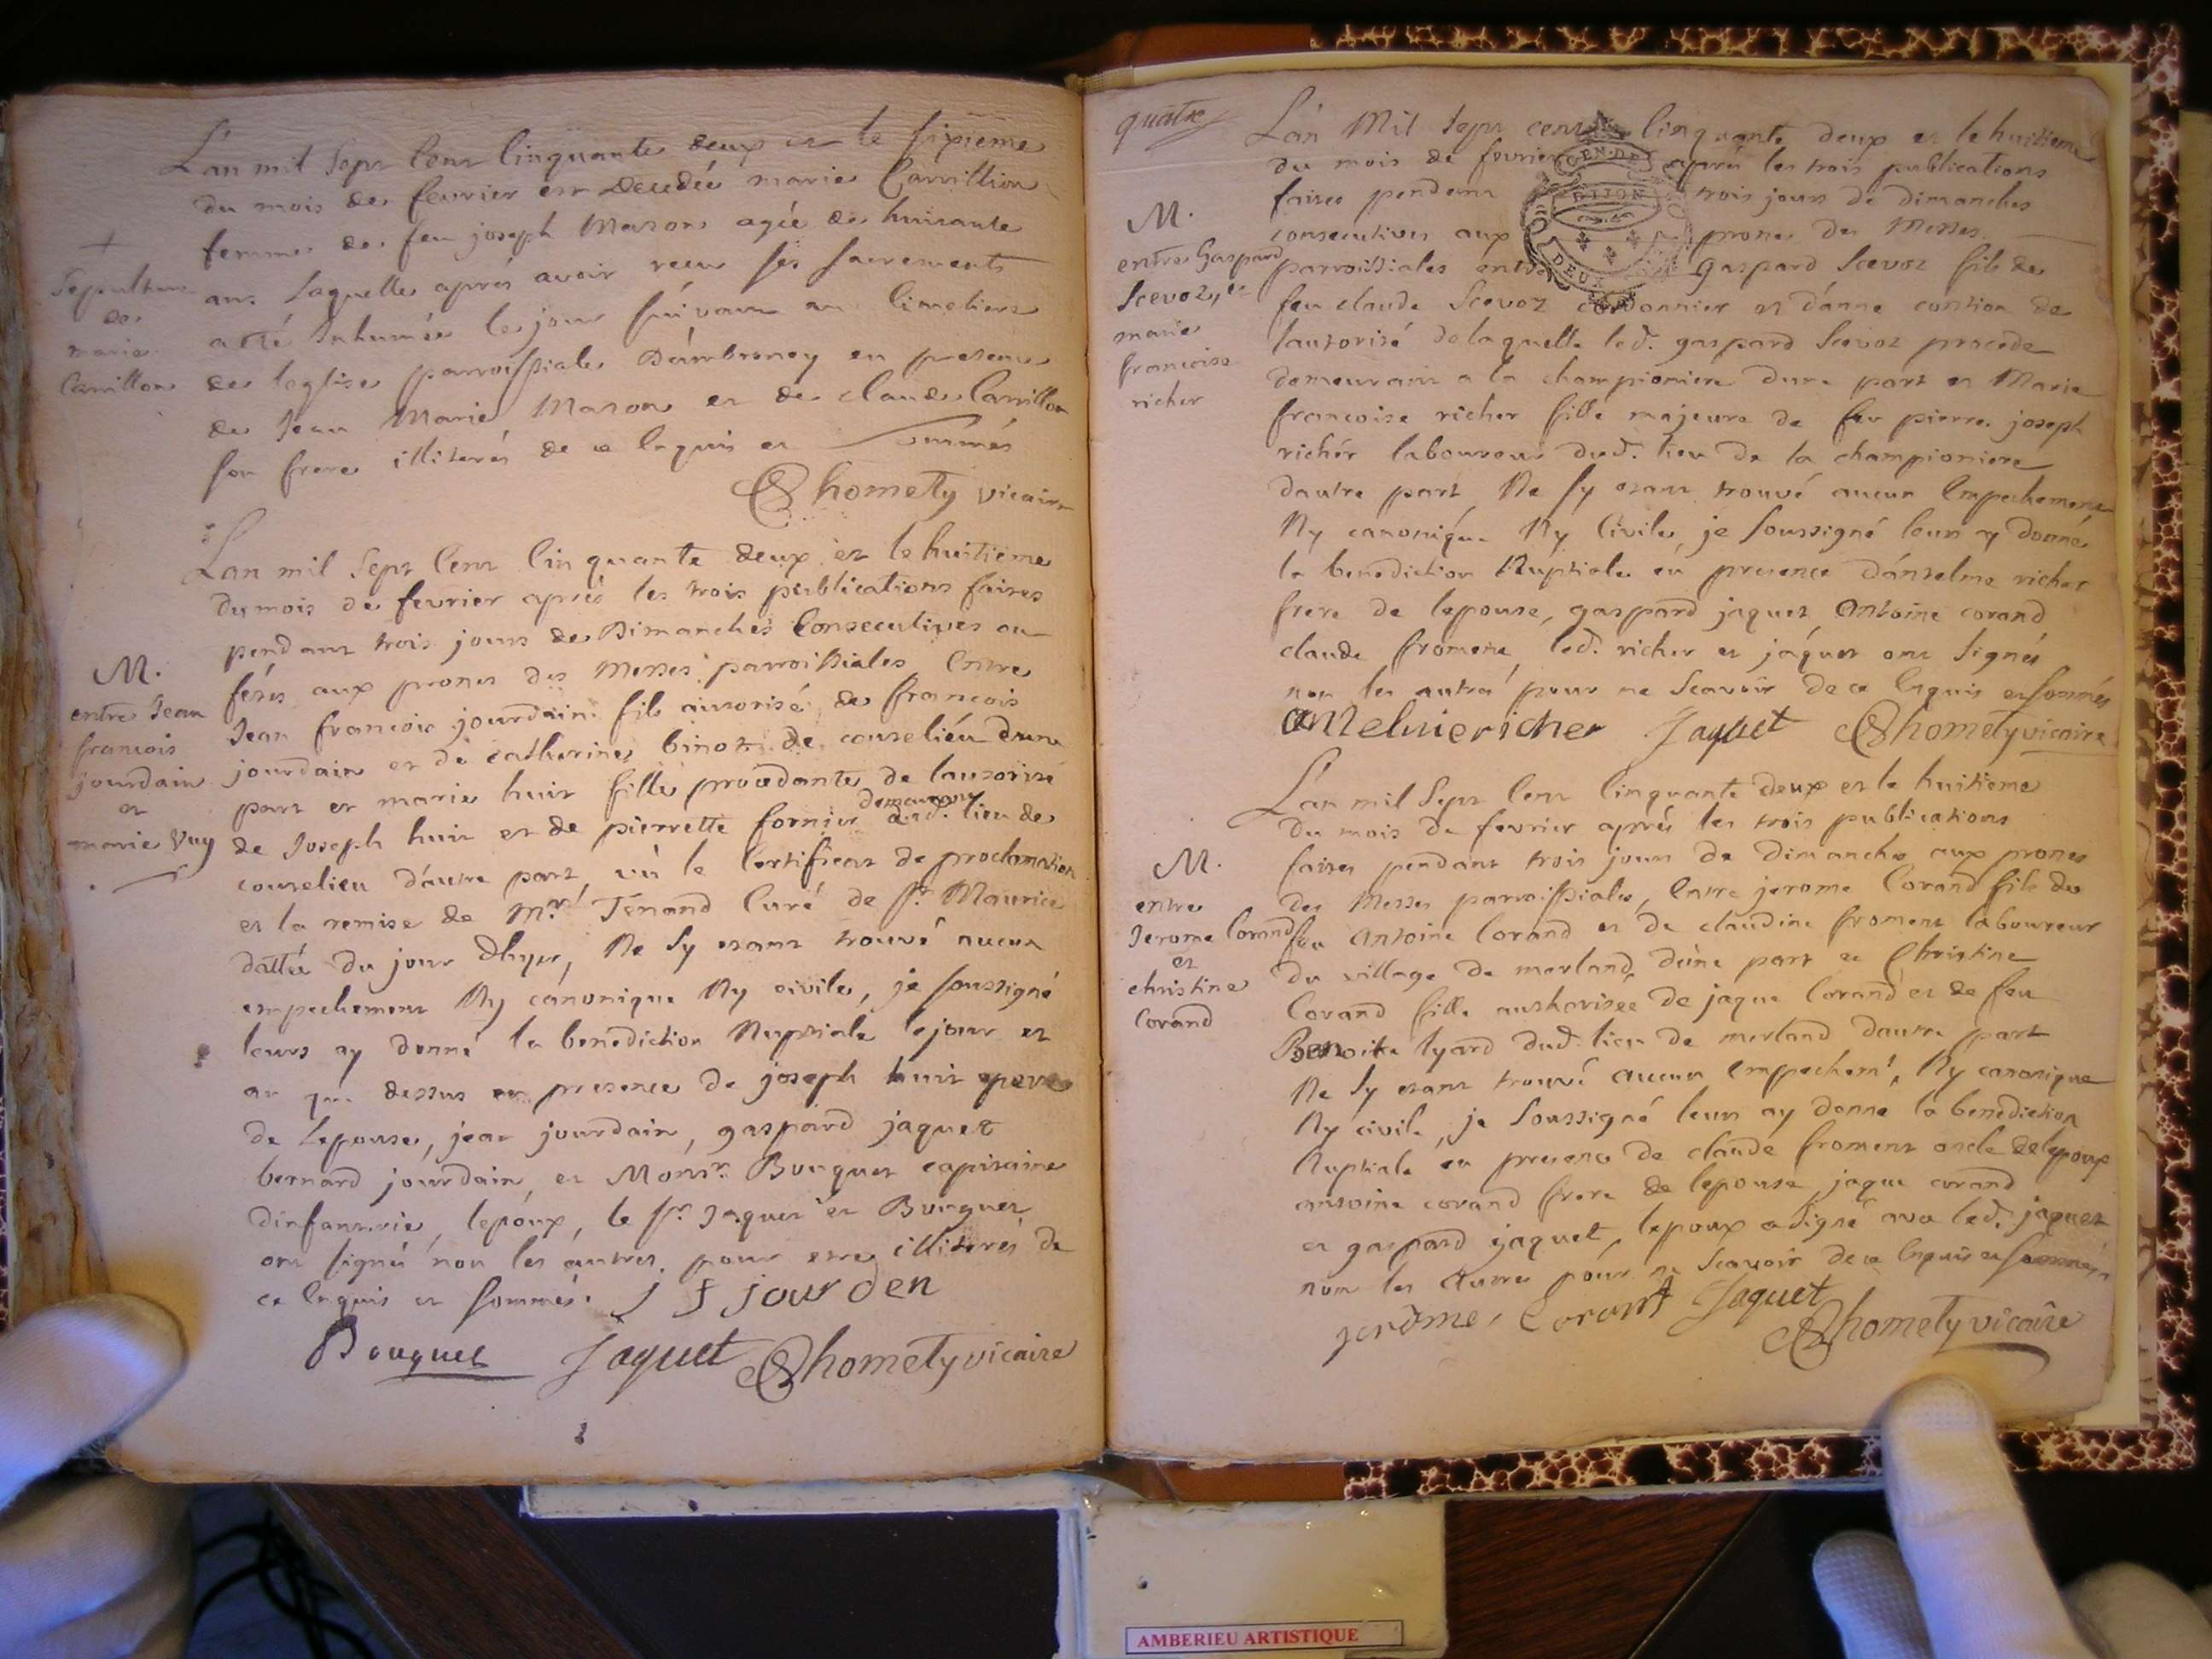 L'an mil sept cent cinquante deux et le sixieme
du mois de fevrier est decedée marie Carrillion
femme de feu joseph Mason agée de huitante
ans laquelle aprés avoir receu ses sacrements
a eté Inhumée le jour suivant au cimetiere
de leglise parroissiale Dambronay en presence
de Jean Marie Mason et de claude Carrillon
son frere illiterés de ce Enquis et sommés
Chomety vicaire
+
Sepulture
de
marie
Carrillon
Lan mil sept cent cinquante deux et le huitieme
du mois de fevrier aprés les trois publications faites
pendant trois jours de Dimanches Consecutives ou
fétés aux prones des Messes parroissiales Entre
Jean francois jourdain fils autorisé de francois
jourdain et de catherine binot de couselieu dune
part et marie huit fille procedante de lautorité
de Joseph huit et de pierrette fornier demeurant aud. lieu de
couselieu dautre part, vû le Certificat de proclamation
et la remise de Mr. Tenand Curé de St. Maurice
dattée du jour dhyer, Ne sy etant trouvé aucun
empechement Ny canonique Ny civile, je soussigné
leurs ay donné la benediction Nuptiale le jour et
an que dessus en presence de joseph huit pere
de Lepouse, jean jourdain, gaspard jaquet
bernard jourdain, et Monsr. Bouquet capitaine
dinfanterie, lepoux, le sr. Jaquet et Bouquet
ont signé non les autres pour etre illiterés de
ce Enquis et sommés. J f jourden
Bouquet Jaquet Chomety vicaire
M.
entre Jean
francois
jourdain
et
marie Vuy
quatre
L'an Mil sept cent Cinquante deux et le huitieme
du mois de fevrier aprés les trois publications
faites pendant trois jours de dimanches
consecutives aux prones des Messes
parroissiales entre Gaspard Scevoz fils de
feu claude Scevoz cordonnier et danne
lautorité de laquelle led. gaspard Scevoz procede
demeurant a la championiere dune part et Marie
francoise richer fille majeure de feu pierre joseph
richér laboureur dud. lieu de la championiere
dautre part, Ne sy etant trouvé aucun Empechement
Ny canonique Ny Civile, je soussigné leurs ay donné
la benediction Nuptiale en presence dantelme richer
frere de lepouse, gaspard jaquet, Antoine corand
claude froment, led. richer et jaquet ont signés
non les autres pour ne scavoir de ce Enquis et sommés
antelmericher Jaquet Chomety vicaire
M.
entre Gaspard
Scevoz, et
marie
francoise
richer
L'an mil sept Cent Cinquante deux et le huitieme
du mois de fevrier aprés les trois publications
faites pendant trois jours de dimanche aux prones
des Messes parroissiales, Entre jerome Corand fils de
feu Antoine Corand et de claudine froment laboureur
du village de merland, dune part et Christine
Corand fille authorisee de jaque Corand et de feu
Benoite lyard dud. lieu de merland dautre part
Ne sy etant trouvé aucun Empechemt, Ny canonique
Ny civile, je soussigné leurs ay donné la benediction
Nuptiale en presence de claude froment oncle de lepoux
antoine corand frere de lepouse jaque corand
et gaspard jaquet, lepoux a signé avec led. jaquet
non les Autres pour ne scavoir de ce Enquis et sommés
jerome Corant Jaquet
Chomety vicaire
M.
entre
Jerome Corand
et
christine
Corand
GEN. DE
DIJON
DEUX
AMBERIEU ARTISTIQUE